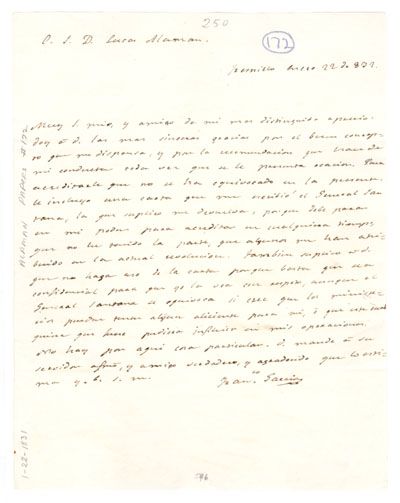 250
172
E. S. D. Lucas Alaman.
Jermillo Enero 22 de 832.
Muy S. mio, y amigo de mi mas distinguido aprecio:
doy á V. las mas sinceras gracias por el buen concep-
to que me dispensa, y por la recomendacion que hace de
mi conducta toda vez que se le presenta ocacion. Para
acreditarle que no se ha equivocado en la presente
le incluyo una carta que me escribió el General San-
tana, la que suplico me devuelva, porque debe parar
en mi poder para acreditar en cualquiera tiempo
que no he tenido la parte, que algunos me han atri-
buido en la actual revolucion. Tambien suplico á V.
que no haga uso de la carta porque basta que sea
confidencial para que yo la vea con respeto, aunque el
General Santana se equivoca si cree que los ministe-
rios puedan tener algun aliciente para mi, ó que este
que pudiera influir en mis operaciones.
No hay por aqui cosa particular. V. mande á su
servidor afmo, y amigo verdadero, y agradecido que lo esti-
ma y b. s. m.
Franco. Garcia
ALAMAN PAPERS # 172
1-22-1831